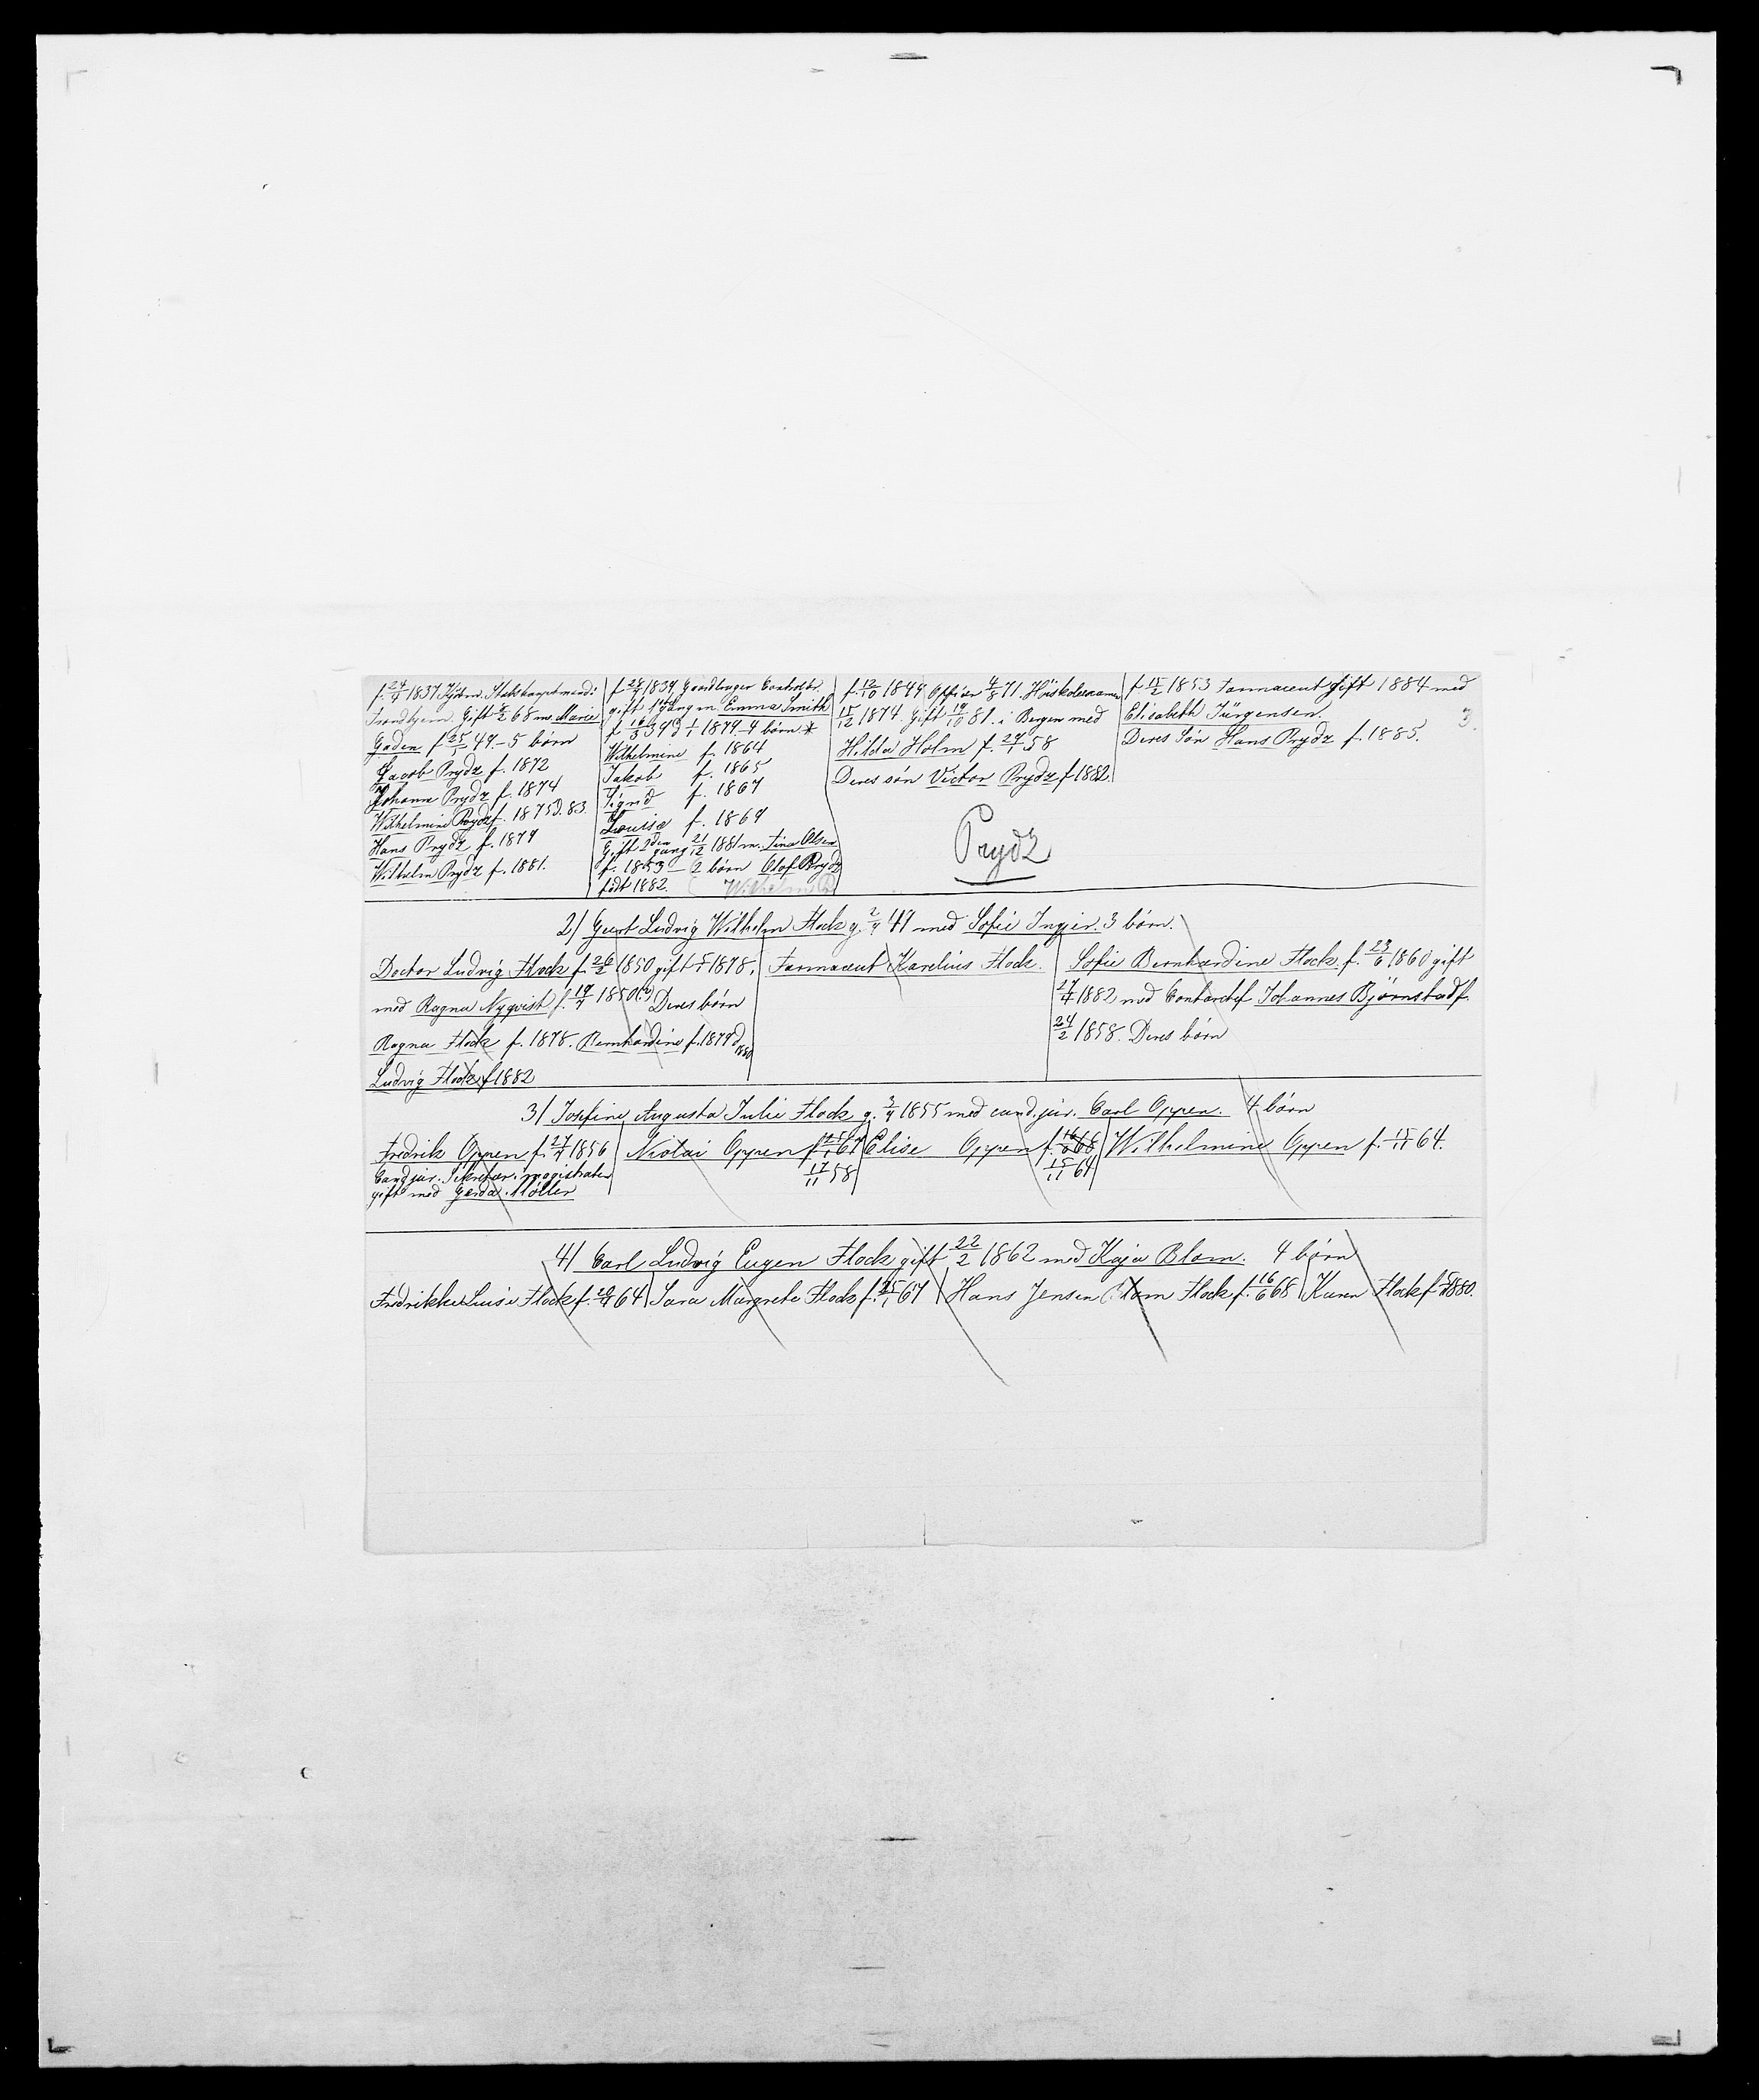 f. 24/4 1837 Kjøbm.
Trondhjem. Gift 68 m. Marie
Gaden f 25/5 49 – 5 børn
Jacob Prydz f. 1872
Johann Prydz f. 1874
Wilhelmine Prydz f. 1875 d. 83.
Hans Prydz f. 1879
Wilhelm Prydz f. 1881.
f 28/4 1839 Gaardbruger
gift 1ste gang m. Emma Smith
1879 – 4 børn *
Wilhelmine f. 1864
Jakob f. 1865
Sigrid f. 1867
Louise f. 1869
Gift 2den gang 21/12 1881 m. Lina Olsen
f. 1853 – 2 børn Olof Prydz
født 1882. Wilhelm P
f. 12/10 1849 Officier 4/8 71. Høiskolexamen
15/12 1874. Gift 19/10 81. i Bergen med
Hilda Holm f. 58
Deres søn Victor Prydz f 1882.
f 15/2 1853 Farmaceut Gift 1884 med
Elisabeth Jürgensen.
Deres Søn Hans Prydz f. 1885.
3.
Prydz
2) Geert Ludvig Wilhelm Flock g. 49 med Sofie Ingier. 3 børn.
Doctor Ludvig Flock f. 26/2 1850 gift 1878.
med Ragna Nyqvist f. 1850(?) Deres børn
Ragna Flock f. 1878. Bernhardine f. 1879 d 1880
Ludvig Flock f 1882
Farmaceut Karelius Flock.
Sofie Bernhardine Flock. f. 23/6 1860 gift
1882 med Contorchef Johannes Bjørnstad f.
24/2 1858. Deres børn
3) Josefine Augusta Julie Flock g. 1855 med cand. jur. Carl Oppen. 4 børn
Fredrik Oppen f. 1856
Cand jur. Sekretær i magistraten
gift med Gerda Møller
Nicolai Oppen f 67
17/11 58
Elise Oppen f. 68
15/11 61
Wilhelmine Oppen f. 15/11 64.
4) Carl Ludvig Eugen Flock gift 22/2 1862 med Kaja Blom. 4 børn
Fredrikke Luise Flock f. 64 Sara Margrete Flock f. 67 Hans Jensen Blom Flock f. 16/6 68 Karen Flock f 1880.